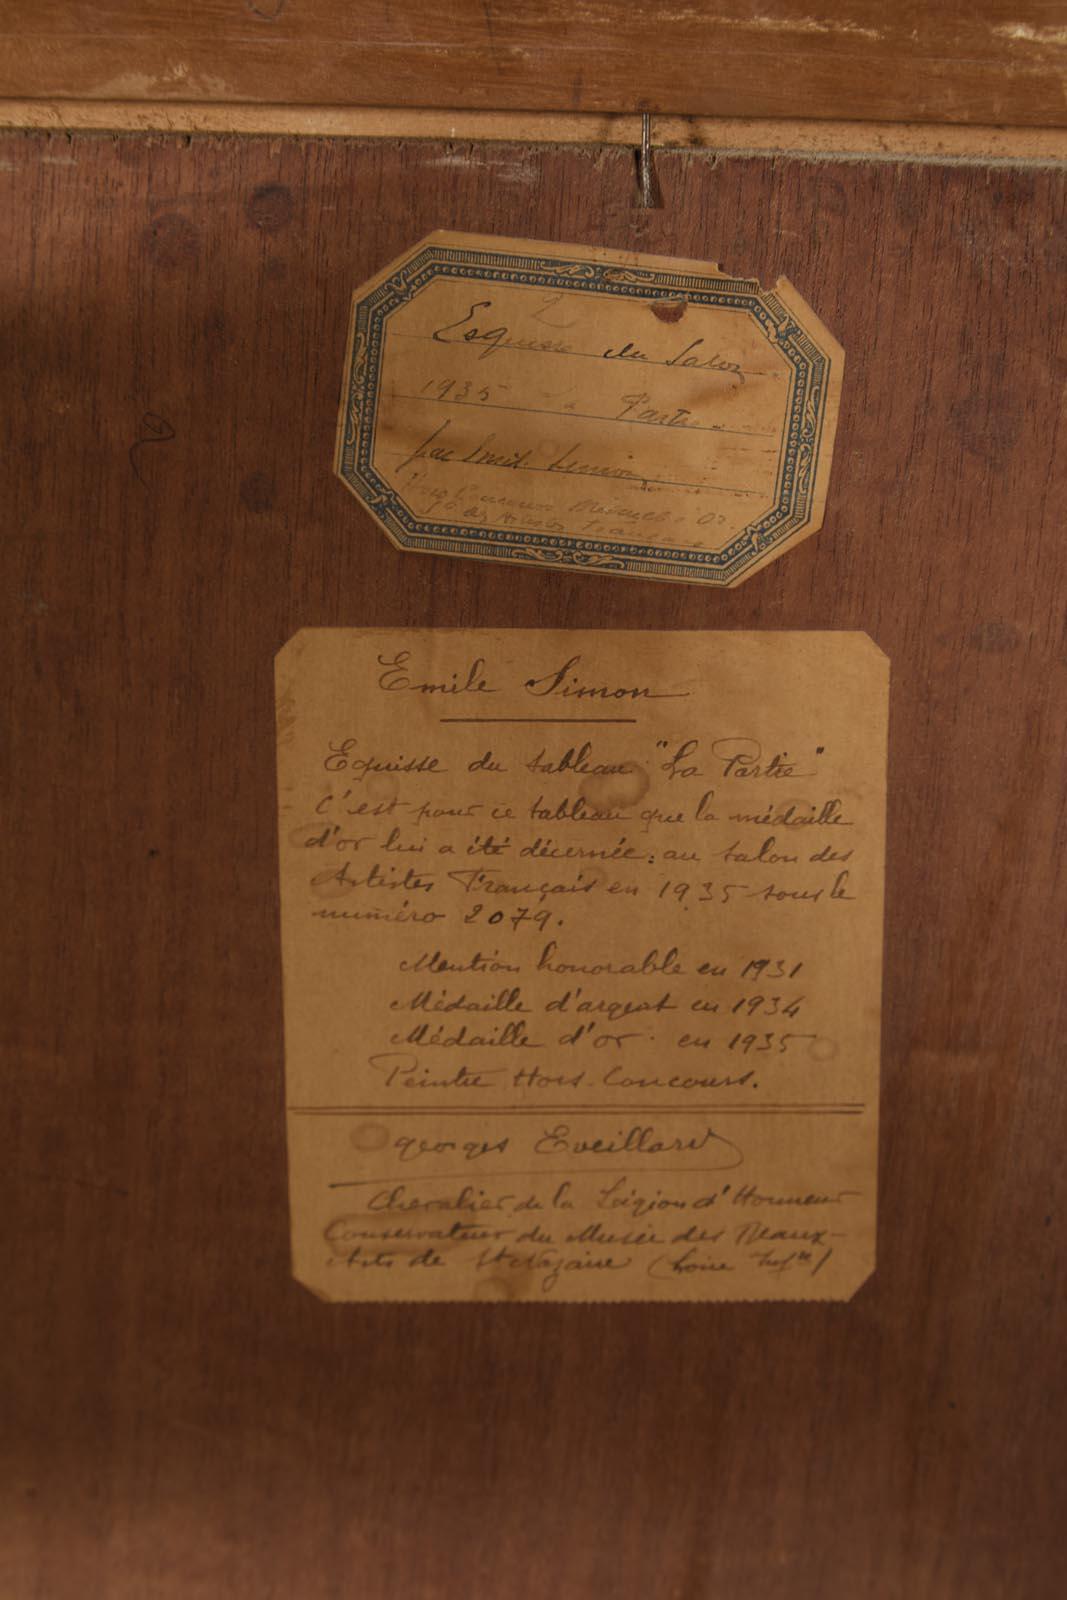 Esquisse du Salon
1935 Partie
par Emile Simon
Hors Concours Médaille Or
Français
Emile Simon
Equisse du tableau "La Partie"
C'est pour ce tableau que la médaille
d'or lui a été décernée: au salon des
Artistes Français en 1935 sous le
numéro 2079.
Mention honorable en 1931
Médaille d'argent en 1934
Médaille d'or. en 1935
Peintre Hors-Concours.
Georges Eveillard
Chevalier de la Légion d'Honneur
Conservateur du Musée des Beaux-
Arts de St Nazaire (Loire Infre)